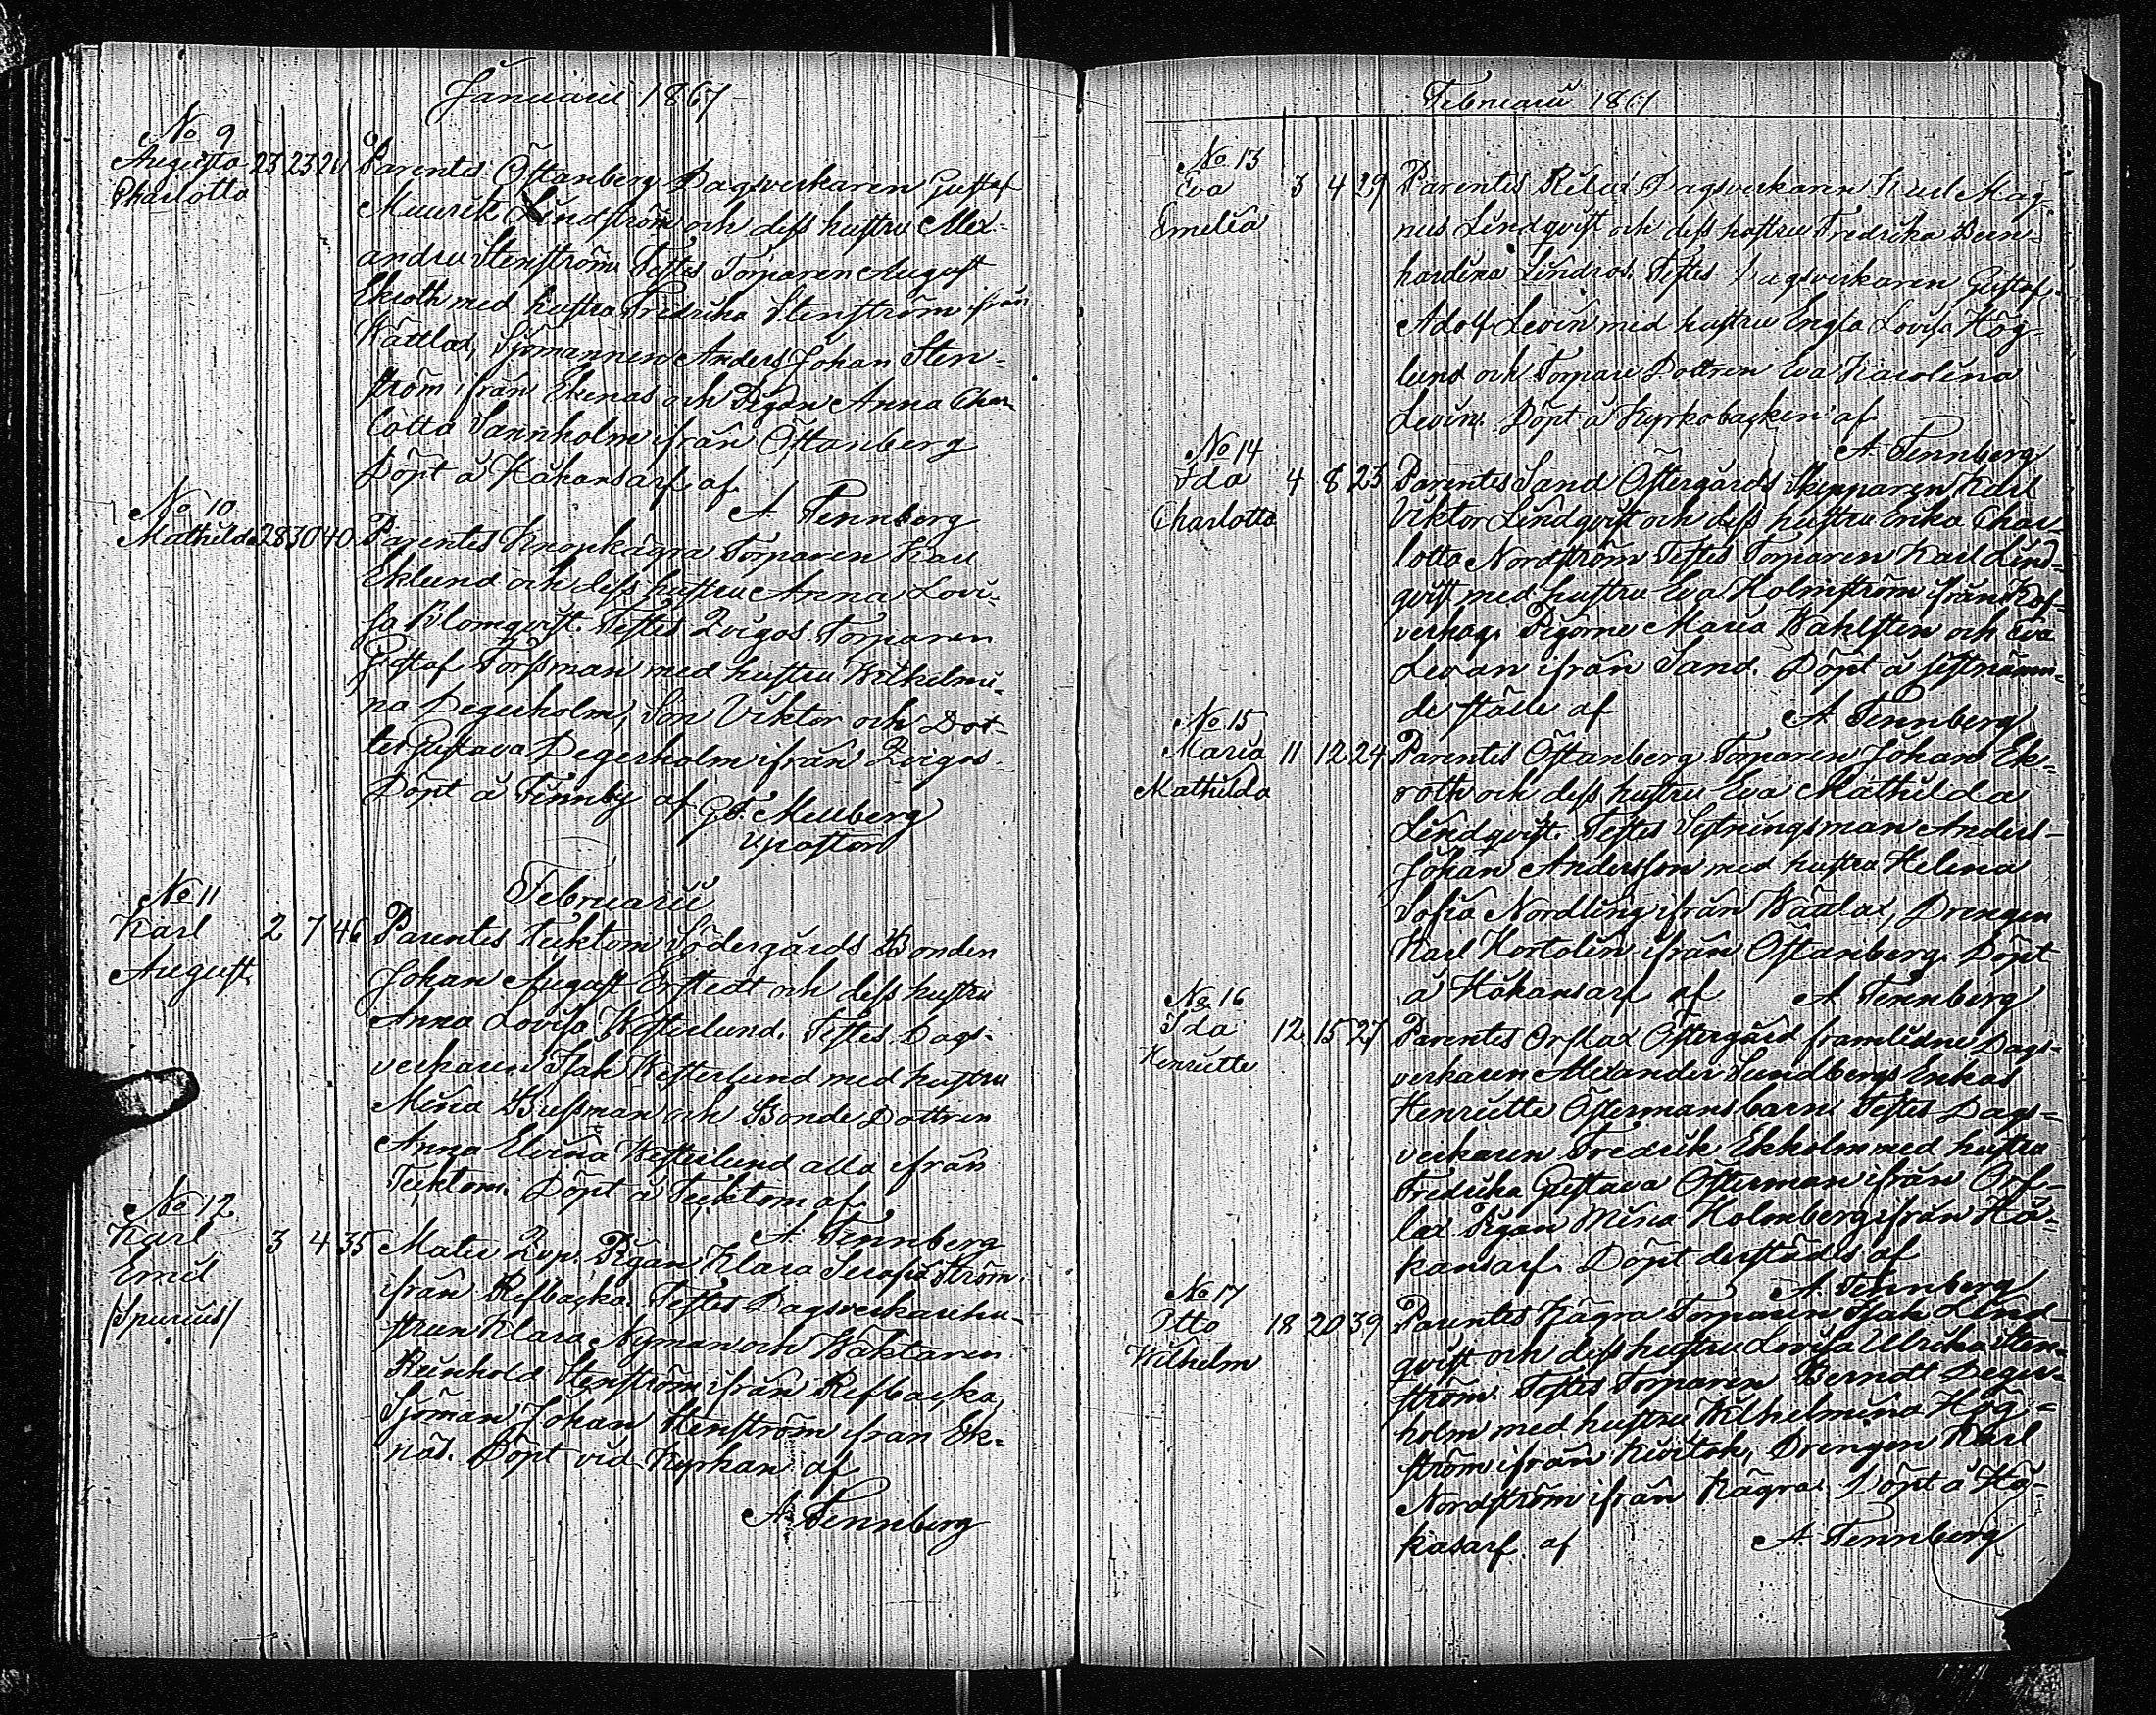 Januarii 1867
No 9
Augusta 23 23 20 Parentes Östanberg Dagsverkaren Gustaf
Charlotta
Maurik Lindström och dess hustru Alex-
andra Stenström Testes Torparen August
Ekroth med hustru Fredrika Stenström ifrån
Wättlax, Sjömannen Anders Johan Sten-
ström ifrån Ekenäs och Pigan Anna Char-
lotta Sannholm ifrån Östanberg
Döpt å Håkansarf af
A. Tennberg
No 10
Mathilda 28 30 40 Parentes Knopkägra Torparen Karl
Eklund och dess hustru Anna Lovi-
sa Blomqvist. Testes Zvigos Torparen
Gustaf Forssman med hustru Wilhelmi-
na Degerholm, Son Viktor och Dot-
ter Gustava Degerholm ifrån Zvigos.
Döpt å Finnby af G. F. Mellberg
Februarii
No 11
Karl 2 7 46 Parentes Tecktom Södergårds Bonden
August
Johan August Erstedt och dess hustru
Anna Lovisa Westerlund. Testes Dags-
verkaren Isak Westerlund med hustru
Mina Bussman och Bonde Dottren
Anna Elvina Westerlund alla ifrån
Tecktom. Döpt å Tecktom af
A. Tennberg
No 12
Karl 3 4 35 Mater Pigan Klara Serafia Ström
Emil
/Spurius/
ifrån Refbacka. Testes Dagsverkarehu-
strun Klara Nyman och Wäktaren
Reinhold Stenström ifrån Refbacka,
Sjöman Johan Stenström ifrån Ek-
näs. Döpt vid Kyrkan af
A. Tennberg
Februarii 1867
No 13
Eva 3 4 29 Parentes Rilax Dagsverkaren Karl Mag-
Emelia
nus Lindqvist och dess hustru Fredrika Bern-
hardina Lindros. Testes Dagsverkaren Gustaf
Adolf Levin med hustru Engla Lovisa Hög-
lund och Torpare Dottren Eva Karolina
Levin. Döpt å Kyrkobacken af
A. Tennberg
No 14
Ida 4 8 23 Parentes Sand Östergårds Skepparen Karl
Charlotta
Viktor Lindqvist och dess hustru Erika Char-
lotta Nordström Testes Torparen Karl Lind-
qvist med hustru Eva Holmström ifrån Kof-
verhag. Pigorne Maria Wahlsten och Eva
Levan ifrån Sand. Döpt å sistnämn-
de ställe af A. Tennberg
No 15
Maria 11 12 24 Parentes Östanberg Torparen Johan Ek-
Mathilda
roth och dess hustru Eva Mathilda
Lindqvist. Testes Anders
Johan Andersson med hustru Helena
Sofia Nordling ifrån Wättlax, Drengen
Karl Hortolin ifrån Östanberg. Döpt
å Håkansarf af A. Tennberg
No 16
Ida 12 15 27 Parentes Orslax Östergård framlidne Dags-
Henriette
verkaren Alexander Sundbergs Enkas
Henriette Östermans barn. Testes Dags-
verkaren Fredrik Ekholm med hustru
Fredrika Gustava Österman ifrån Ors-
lax Pigan Mina Holmberg ifrån Hå-
kansarf. Döpt derstädes af
A. Tennberg
No 17
Otto 18 20 39 Parentes Kägra Torparen Isak Lind-
Wilhelm
qvist och dess hustru Lovisa Ulrika Sten-
ström. Testes Torparen Berndt Deger-
holm med hustru Wilhelmina Hög-
ström ifrån Drengen Karl
Nordström ifrån Kägra. Döpt å Hå-
kasarf af A. Tennberg